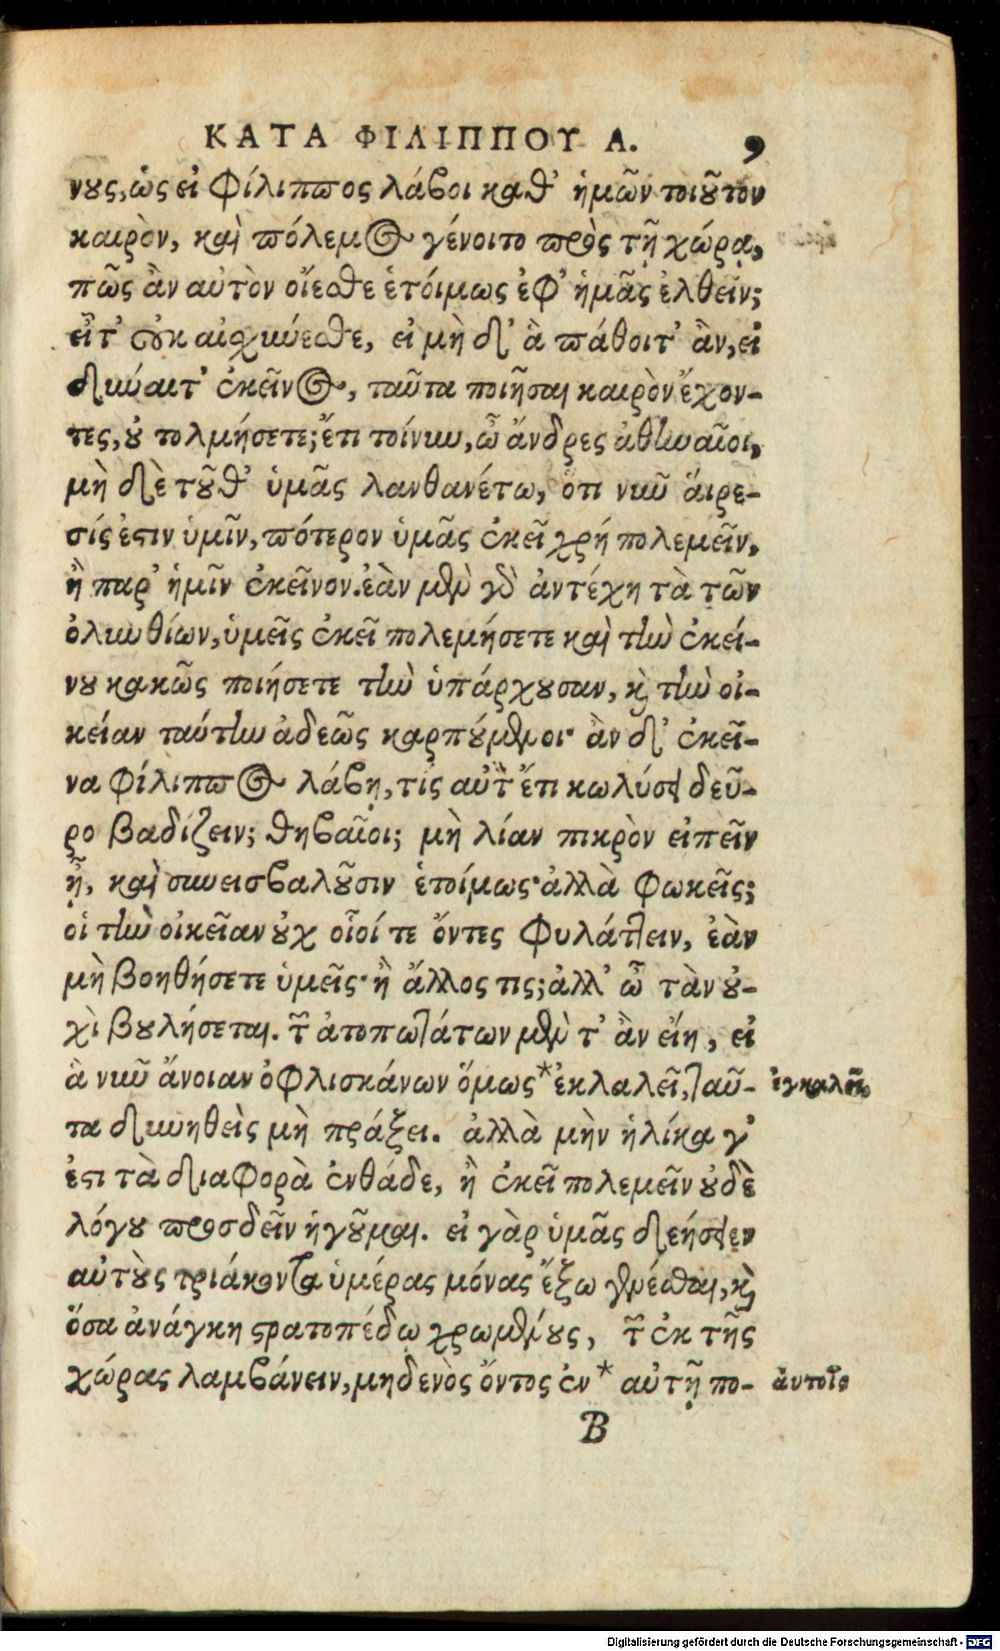 ΚΑΤΑ ΦΙΛΙΠΠΟΥ Α. 9
νους, ὡς εἰ Φίλιππος λάβοι καθ' ἡμῶν τοιοῦτον
καιρὸν, καὶ πόλεμος γένοιτο πρὸς τῇ χώρᾳ,
πῶς ἂν αὐτὸν οἴεσθε ἑτοίμως ἐφ' ἡμᾶς ἐλθεῖν;
εἶτ' οὐκ αἰσχύνεσθε, εἰ μὴ δ' ἃ πάθοιτ' ἂν, εἰ
δύναιτ' ἐκεῖνος, ταῦτα ποιῆσαι καιρὸν ἔχον-
τες, οὐ τολμήσετε; ἔτι τοίνυν, ὦ ἄνδρες ἀθηναῖοι,
μὴ δὲ τοῦθ' ὑμᾶς λανθανέτω, ὅτι νῦν αἵρε-
σίς ἐστιν ὑμῖν, πότερον ὑμᾶς ἐκεῖ χρή πολεμεῖν,
ἢ παρ' ἡμῖν ἐκεῖνον. ἐὰν μὲν γὰρ ἀντέχη τὰ τῶν
ὀλυνθίων, ὑμεῖς ἐκεῖ πολεμήσετε καὶ τὴν ἐκεί-
νου κακῶς ποιήσετε τὴν ὑπάρχουσαν, καὶ τὴν οἰ-
κείαν ταύτην ἀδεῶς καρπούμενοι· ἂν δ' ἐκεῖ-
να Φίλιππος λάβῃ, τίς αὐτὸν ἔτι κωλύσει δεῦ-
ρο βαδίζειν; θηβαῖοι; μὴ λίαν πικρὸν εἰπεῖν
ᾖ, καὶ συνεισβαλοῦσιν ἑτοίμως· ἀλλὰ φωκεῖς;
οἱ τὴν οἰκεῖαν οὐχ οἷοί τε ὄντες φυλάττειν, ἐὰν
μὴ βοηθήσετε ὑμεῖς· ἢ ἄλλος τις; ἀλλ' ὦ τὰν οὐ-
χὶ βουλήσεται. τῶν ἀτοπωτάτων μὲν τ' ἂν εἴη, εἰ
ἃ νῦν ἄνοιαν ὀφλισκάνων ὅμως * ἐκλαλεῖ, ταῦ- ἐγκαλεῖ
τα δυνηθεὶς μὴ πράξει. ἀλλὰ μὴν ἡλίκα γ'
ἐστι τὰ διαφορὰ ἐνθάδε, ἢ ἐκεῖ πολεμεῖν οὐδὲ
λόγου προσδεῖν ἡγοῦμαι. εἰ γὰρ ὑμᾶς δεήσειεν
αὐτοὺς τριάκοντα ὑμέρας μόνας ἔξω γενέσθαι, καὶ
ὅσα ἀνάγκη στρατοπέδω χρωμένους, τῶν ἐκ τῆς
χώρας λαμβάνειν, μηδενὸς ὄντος ἐν * αὐτῇ πο- ἀυτοῖς
B
Digitalisierung gefördert durch die Deutsche Forschungsgemeinschaft - DFG